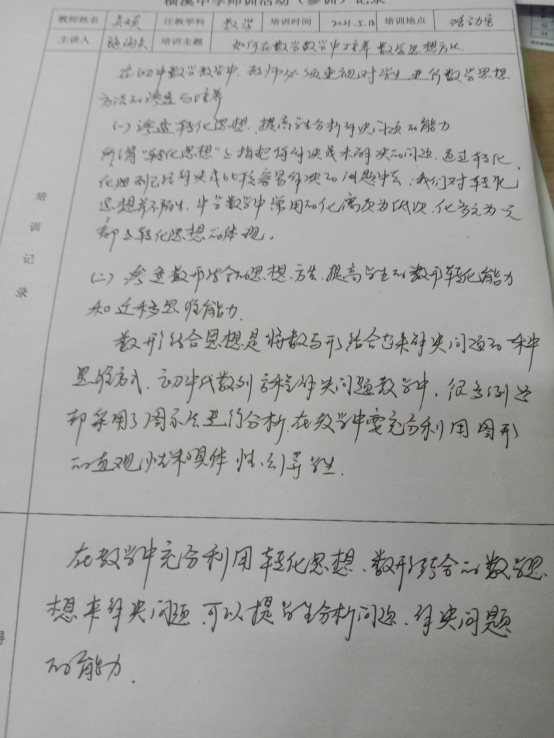 横溪中学师训活动（参训）记录
教师姓名 任教学科 数学 培训时间 2021.5.18 培训地点 活动室
主讲人 培训主题 如何在数学教学中培养数学思想方法
在初中数学教学中，教师必须重视对学生进行数学思想
方法的渗透与培养
(一)渗透转化思想，提高学生分析解决问题的能力
所谓"转化思想"是指把待解决或未解决的问题，通过转化，
化归到已经解决或比较容易解决的问题中去，我们对转化
思想并不陌生，中学数学中常用的化高次为低次，化多元为一元
都是转化思想的体现。
(二)渗透数形结合的思想方法，提高学生的数形转化能力
和迁移思维能力
数形结合思想是将数与形结合起来解决问题的一种
思维方式，初中代数列方程解决问题教学中，很多例题
都采用了图示法进行分析，在教学中要充分利用图形
的直观性和具体性，引导学生
培训记录
在教学中充分利用转化思想、数形结合的数学思
想来解决问题，可以提学生分析问题、解决问题
的能力.
得